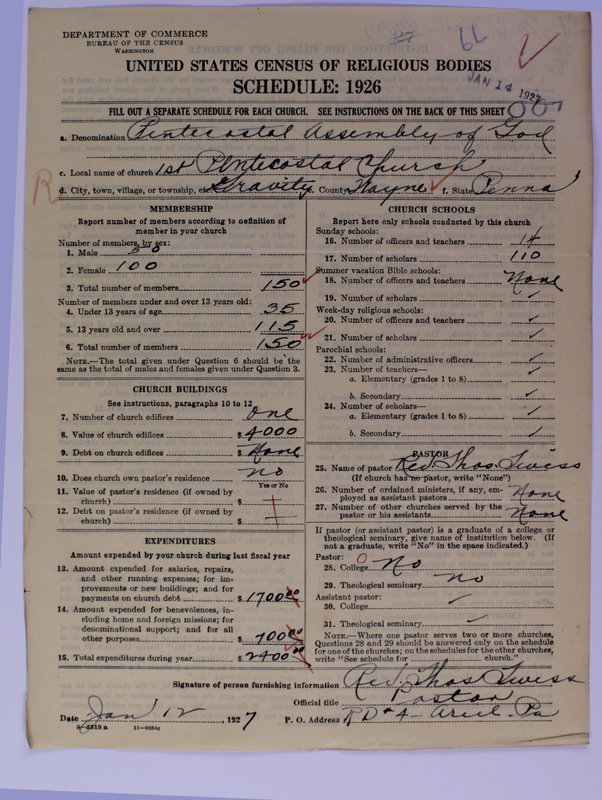 DEPARTMENT OF COMMERCE
BUREAU OF THE CENSUS
WASHINGTON
UNITED STATES CENSUS OF RELIGIOUS BODIES
SCHEDULE: 1926
JAN 14 1927
FILL OUT A SEPARATE SCHEDULE FOR EACH CHURCH. SEE INSTRUCTIONS ON THE BACK OF THIS SHEET
a. Denomination Pentecostal Assembly of God
c. Local name of church 1st Pentecostal Church
R d. City, town, village, or township, etc. Gravity e. County Wayne f. State Penna
MEMBERSHIP
Report number of members according to definition of
member in your church
Number of members, by sex:
1. Male 50
2. Female 100
3. Total number of members 150
Number of members under and over 13 years old:
4. Under 13 years of age 35
5. 13 years old and over 115
6. Total number of members 150
NOTE.—The total given under Question 6 should be the
same as the total of males and females given under Question 3.
CHURCH BUILDINGS
See instructions, paragraphs 10 to 12
7. Number of church edifices one
8. Value of church edifices $ 4000
9. Debt on church edifices $ None
10. Does church own pastor's residence no
Yes or No
11. Value of pastor's residence (if owned by
church) $
12. Debt on pastor's residence (if owned by
church) $
EXPENDITURES
Amount expended by your church during last fiscal year
13. Amount expended for salaries, repairs,
and other running expenses; for im-
provements or new buildings; and for
payments on church debt $ 1700.00
14. Amount expended for benevolences, in-
cluding home and foreign missions; for
denominational support; and for all
other purposes $ 700.00
15. Total expenditures during year $ 2400.00
CHURCH SCHOOLS
Report here only schools conducted by this church
Sunday schools:
16. Number of officers and teachers 14
17. Number of scholars 110
Summer vacation Bible schools:
18. Number of officers and teachers None
19. Number of scholars ✓
Week-day religious schools:
20. Number of officers and teachers ✓
21. Number of scholars ✓
Parochial schools:
22. Number of administrative officers ✓
23. Number of teachers—
a. Elementary (grades 1 to 8) ✓
b. Secondary ✓
24. Number of scholars—
a. Elementary (grades 1 to 8) ✓
b. Secondary ✓
PASTOR
25. Name of pastor Rev. Thos. Swiss
(If church has no pastor, write "None")
26. Number of ordained ministers, if any, em-
ployed as assistant pastors None
27. Number of other churches served by the
pastor or his assistants None
If pastor (or assistant pastor) is a graduate of a college or
theological seminary, give name of institution below. (If
not a graduate, write "No" in the space indicated.)
Pastor:
28. College No
29. Theological seminary no
Assistant pastor:
30. College ✓
31. Theological seminary ✓
NOTE.—Where one pastor serves two or more churches,
Questions 28 and 29 should be answered only on the schedule
for one of the churches; on the schedules for the other churches,
write "See schedule for church."
Signature of person furnishing information Rev. Thos Swiss
Official title Pastor
Date Jan 12, 1927 P. O. Address R D # 4 - Ariel. Pa
8-4518 a 11-9054a